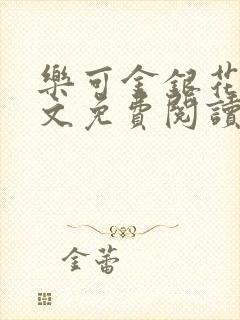 樂可金銀花
文免費閱讀
金蕾